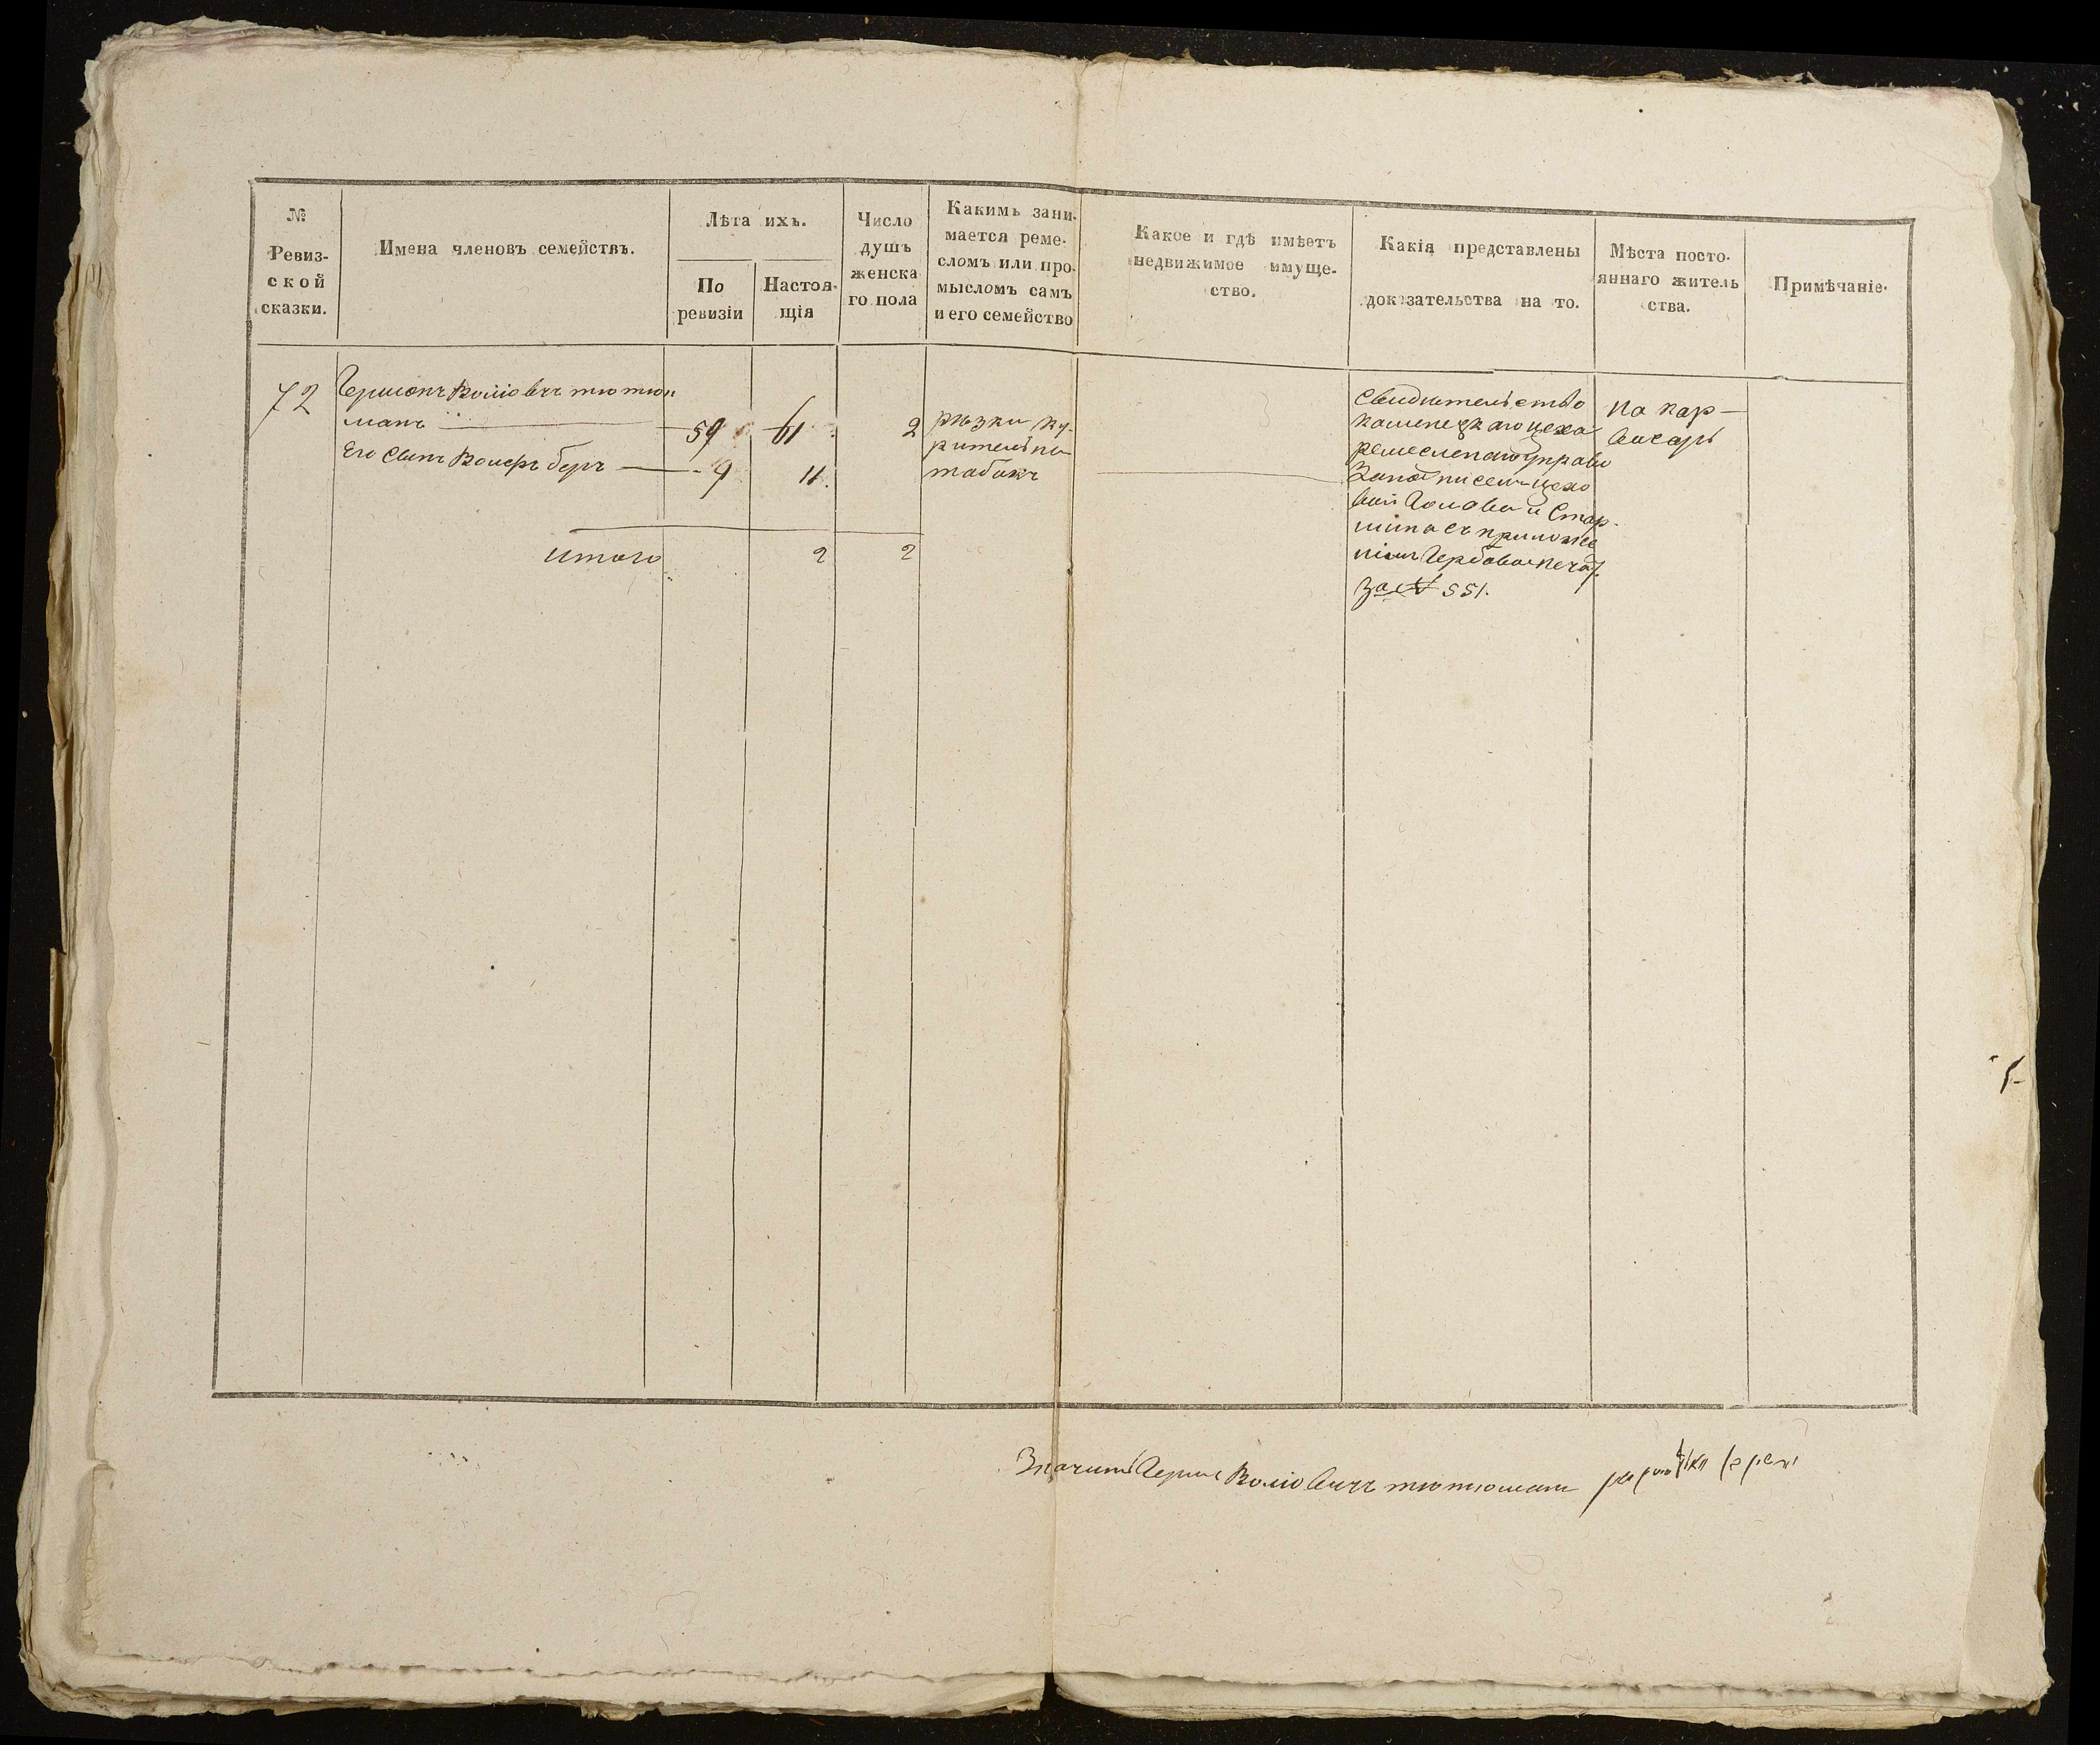 №
Ревиз-
ской
сказки.
Имена членовъ семействъ.
Лѣта ихъ.
По
ревизіи
Настоя-
щія
Число
душъ
женска
го пола
Какимъ зани-
мается реме-
сломъ или про-
мысломъ самъ
и его семейство
Какое и гдѣ имѣетъ
недвижимое имуще-
ство.
Какія представлены
доказательства на то.
Мѣста посто-
яннаго житель
ства.
Примѣчаніе.
72
Гершонъ Волiовичъ тютюн
манъ
59 61 2
Его Сынъ Волфъ беръ
9 11.
рѣзки ку-
рителнаго
табаку
Свидѣтельство
каменецкаго цеха
ремесленой управы
цехо
вой Голова и Стар-
шина съ приложе
ніемъ Гербовой печат.
За № 551.
на кар-
васары
итого 2 2
ГершъВоліовичъ тютюнманъ